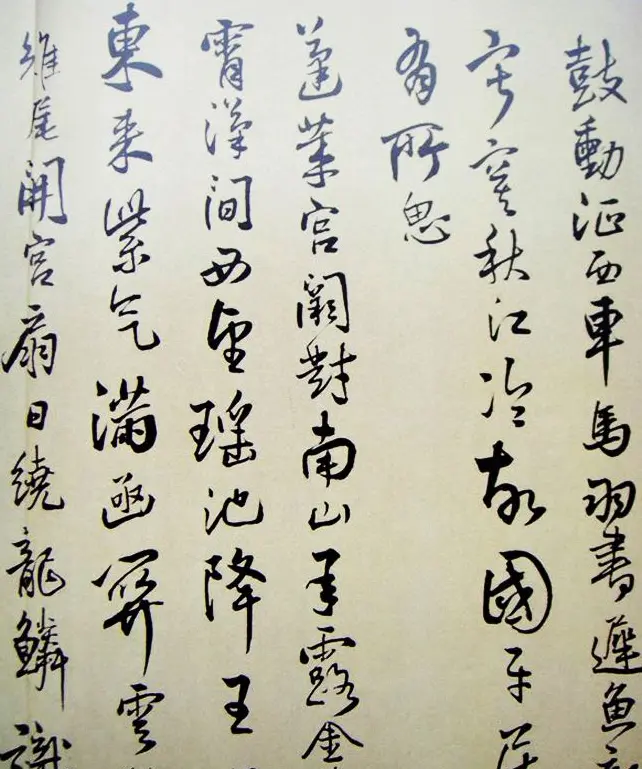 鼓動征西車馬羽書遲魚
寂寞秋江冷故國平居
有所思
蓬萊宮闕對南山承露金
霄漢間西望瑤池降王
東來紫气滿函關雲
雉尾開宮扇日繞龍鱗識